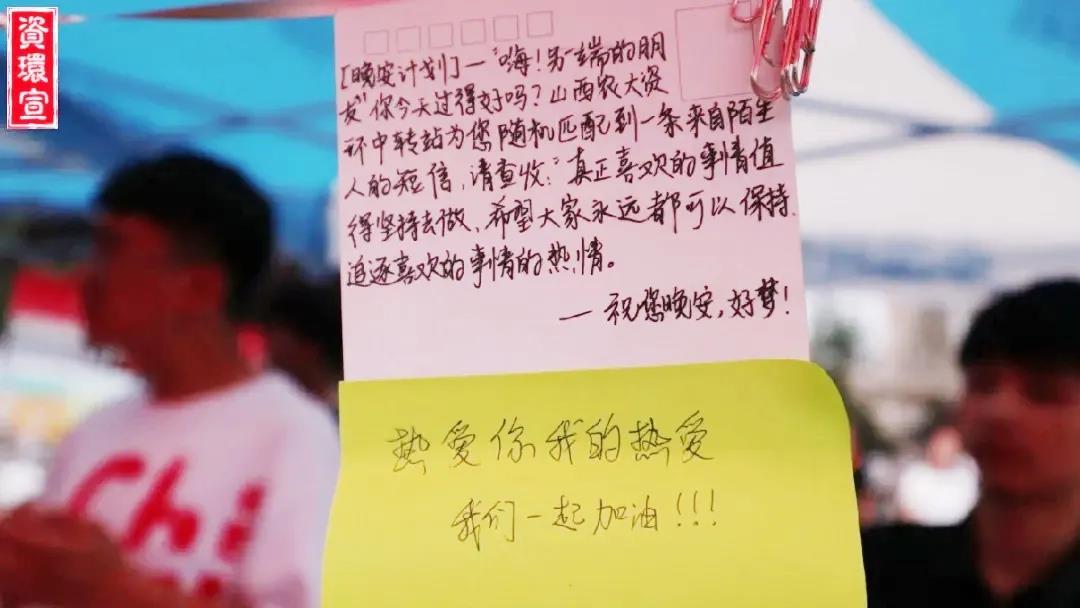 資環宣
[晚安计划]一"嗨!另一端的朋
友"你今天过得好吗?山西农大资
环中转站为您随机匹配到一条来自陌生
人的短信,请查收:"真正喜欢的事情值
得坚持去做、希望大家永远都可以保持
追逐喜欢的事情的热情。
一祝您晚安,好梦!
热爱你我的热爱
我们一起加油!!!
Chi